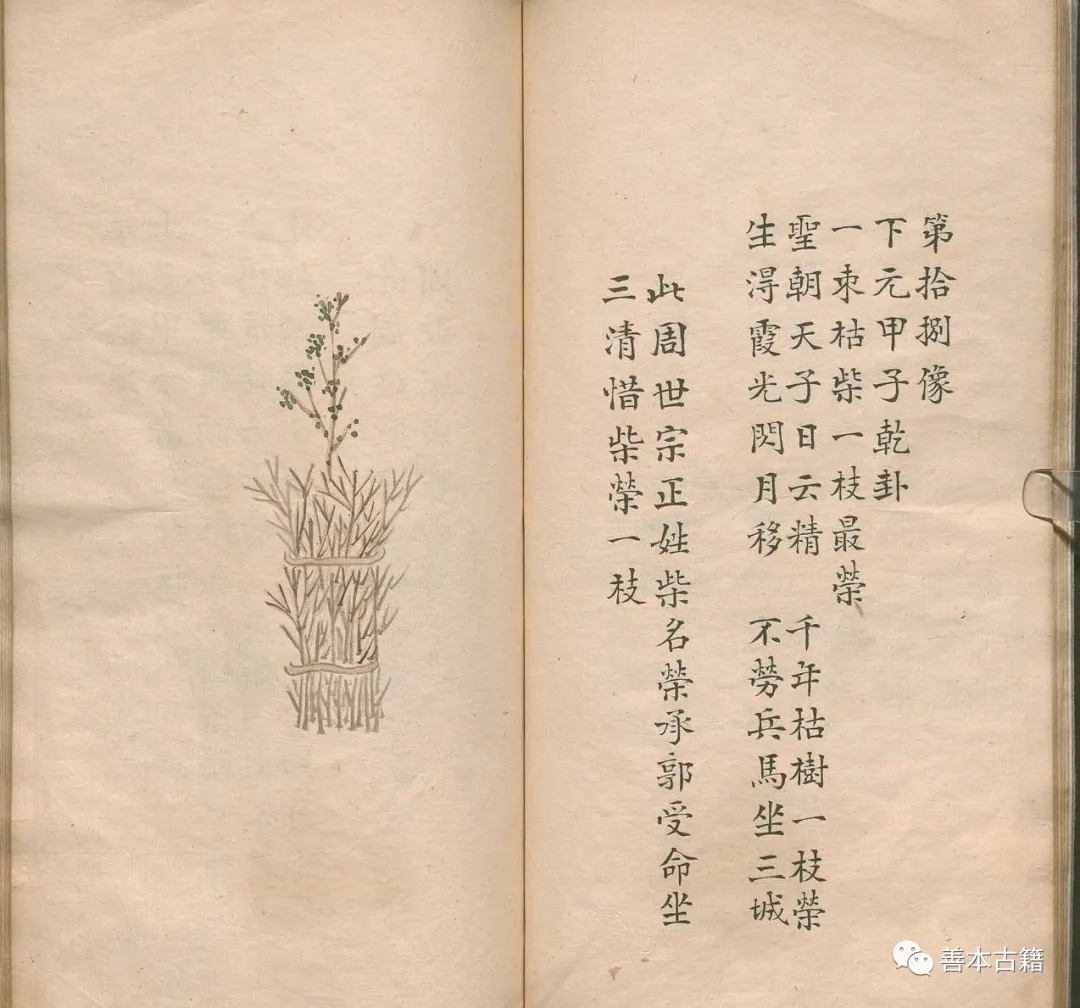 第拾捌像
下元甲子乾卦
一束枯柴一枝最榮
聖朝天子日云精 千年枯樹一枝榮
生淂霞光閃月移 不勞兵馬坐三城
此周世宗正姓柴名榮承郭受命坐
三清惜柴榮一枝
善本古籍